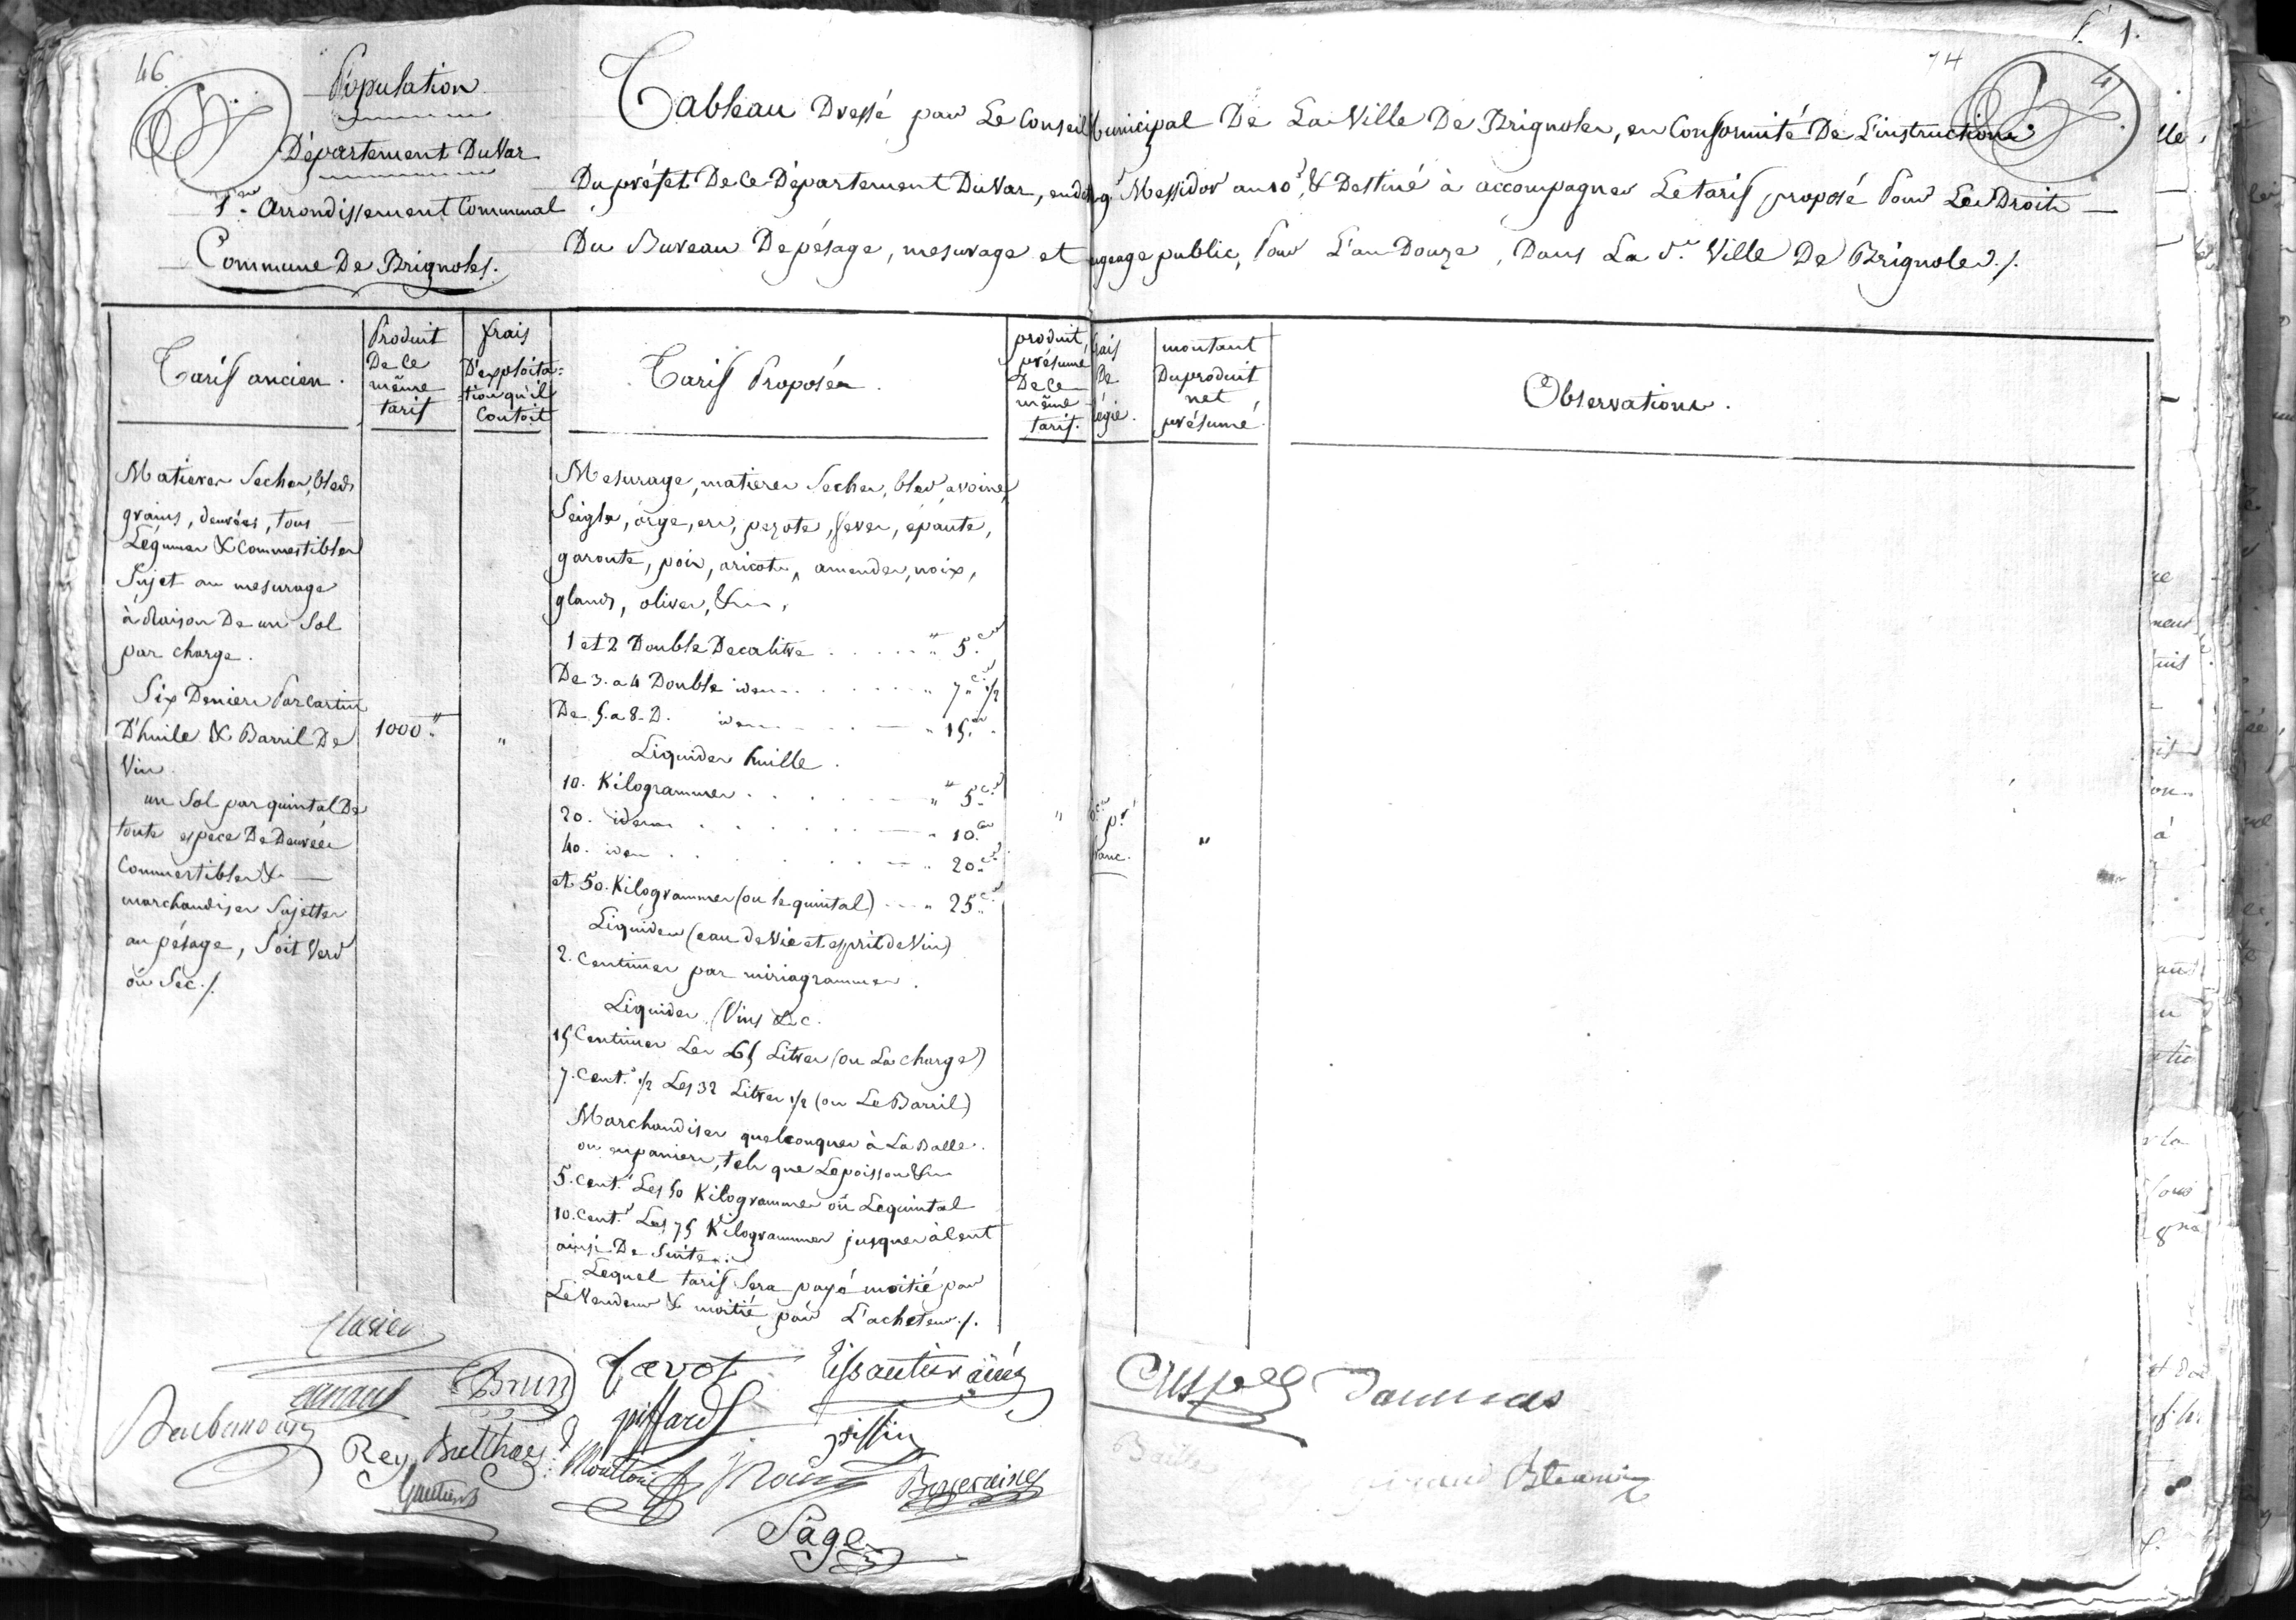 46
Population
Département Du Var
1er Arrondissement Communal
Commune De Brignoles.
74
47
Tableau Dressé par Le Conseil Municipal De La Ville De Brignoles, en Conformité De L'instruction
Du préfet De ce Département Du Var, en date 9 Messidor an 10, & Destiné à accompagner Le tarif proposé Pour Les Droits
Du Bureau De pésage, mesurage et jugeage public, Pour L'an Douze, Dans La de. Ville De Brignoles ./.
Tarif ancien.
Produit
De Ce
même
tarif
frais
D'exploita=
=tion qu'il
Coutoit
Tarif Proposés.
produit
présumé
De Ce
même
tarif.
frais
De
régie.
montant
Du produit
net
présumé.
Observations.
Matieres Seches, bleds
grains, denrées, tous
Légumes & Commestibles
Sujet au mesurage
à Raison De un Sol
par charge.
Six Deniers Par Cartin
D'huile & Barril De
Vin
un Sol par quintal De
toute espece De Denrées
Commestibles &
marchandises Sujettes
au pésage, Soit Verd
ou Sec ./.
1000 "
"
Mesurage, matieres Seches, bled, avoine,
Seigle, orge, ers, pezote, feves, épaute,
garoute, pois, aricots, amandes, noix,
glands, olives, &,
1 et 2 Double Decalitre . . . . . " 5 cs
De 3. a 4 Double idem . . . . . " 7 cs 1/2
De 5. a 8. D. idem . . . " 15 cs
Liquides huille.
10. Kilogrammes . . . . . " 5 cs
20. idem . . . . . " 10 cs
40. idem . . . . . " 20 cs
et 50. Kilogrammes (ou le quintal) . . . " 25 cs
Liquides (eau de Vie et esprit de Vin)
2. Centimes par miriagrammes.
Liquides (Vins &c.
15 Centimes Les 65 Litres (ou La charge)
7. Cent.s 1/2 Les 32 Litres 1/2 (ou Le Barril)
Marchandises quelconques à La Balle.
ou en paniers, tels que Le poisson &
5. Cent.s Les 50 Kilogrammes ou Le quintal
10. Cent.s Les 75 Kilogrammes jusques à Cent
ainsi De Suite.
Lequel tarif Sera payé moitié par
Le Vendeur & moitié par L'acheteur ./.
"
p.r
franc.
"
Brun
Tavot
piffard
Rey
Gautier
Sage
Daumas